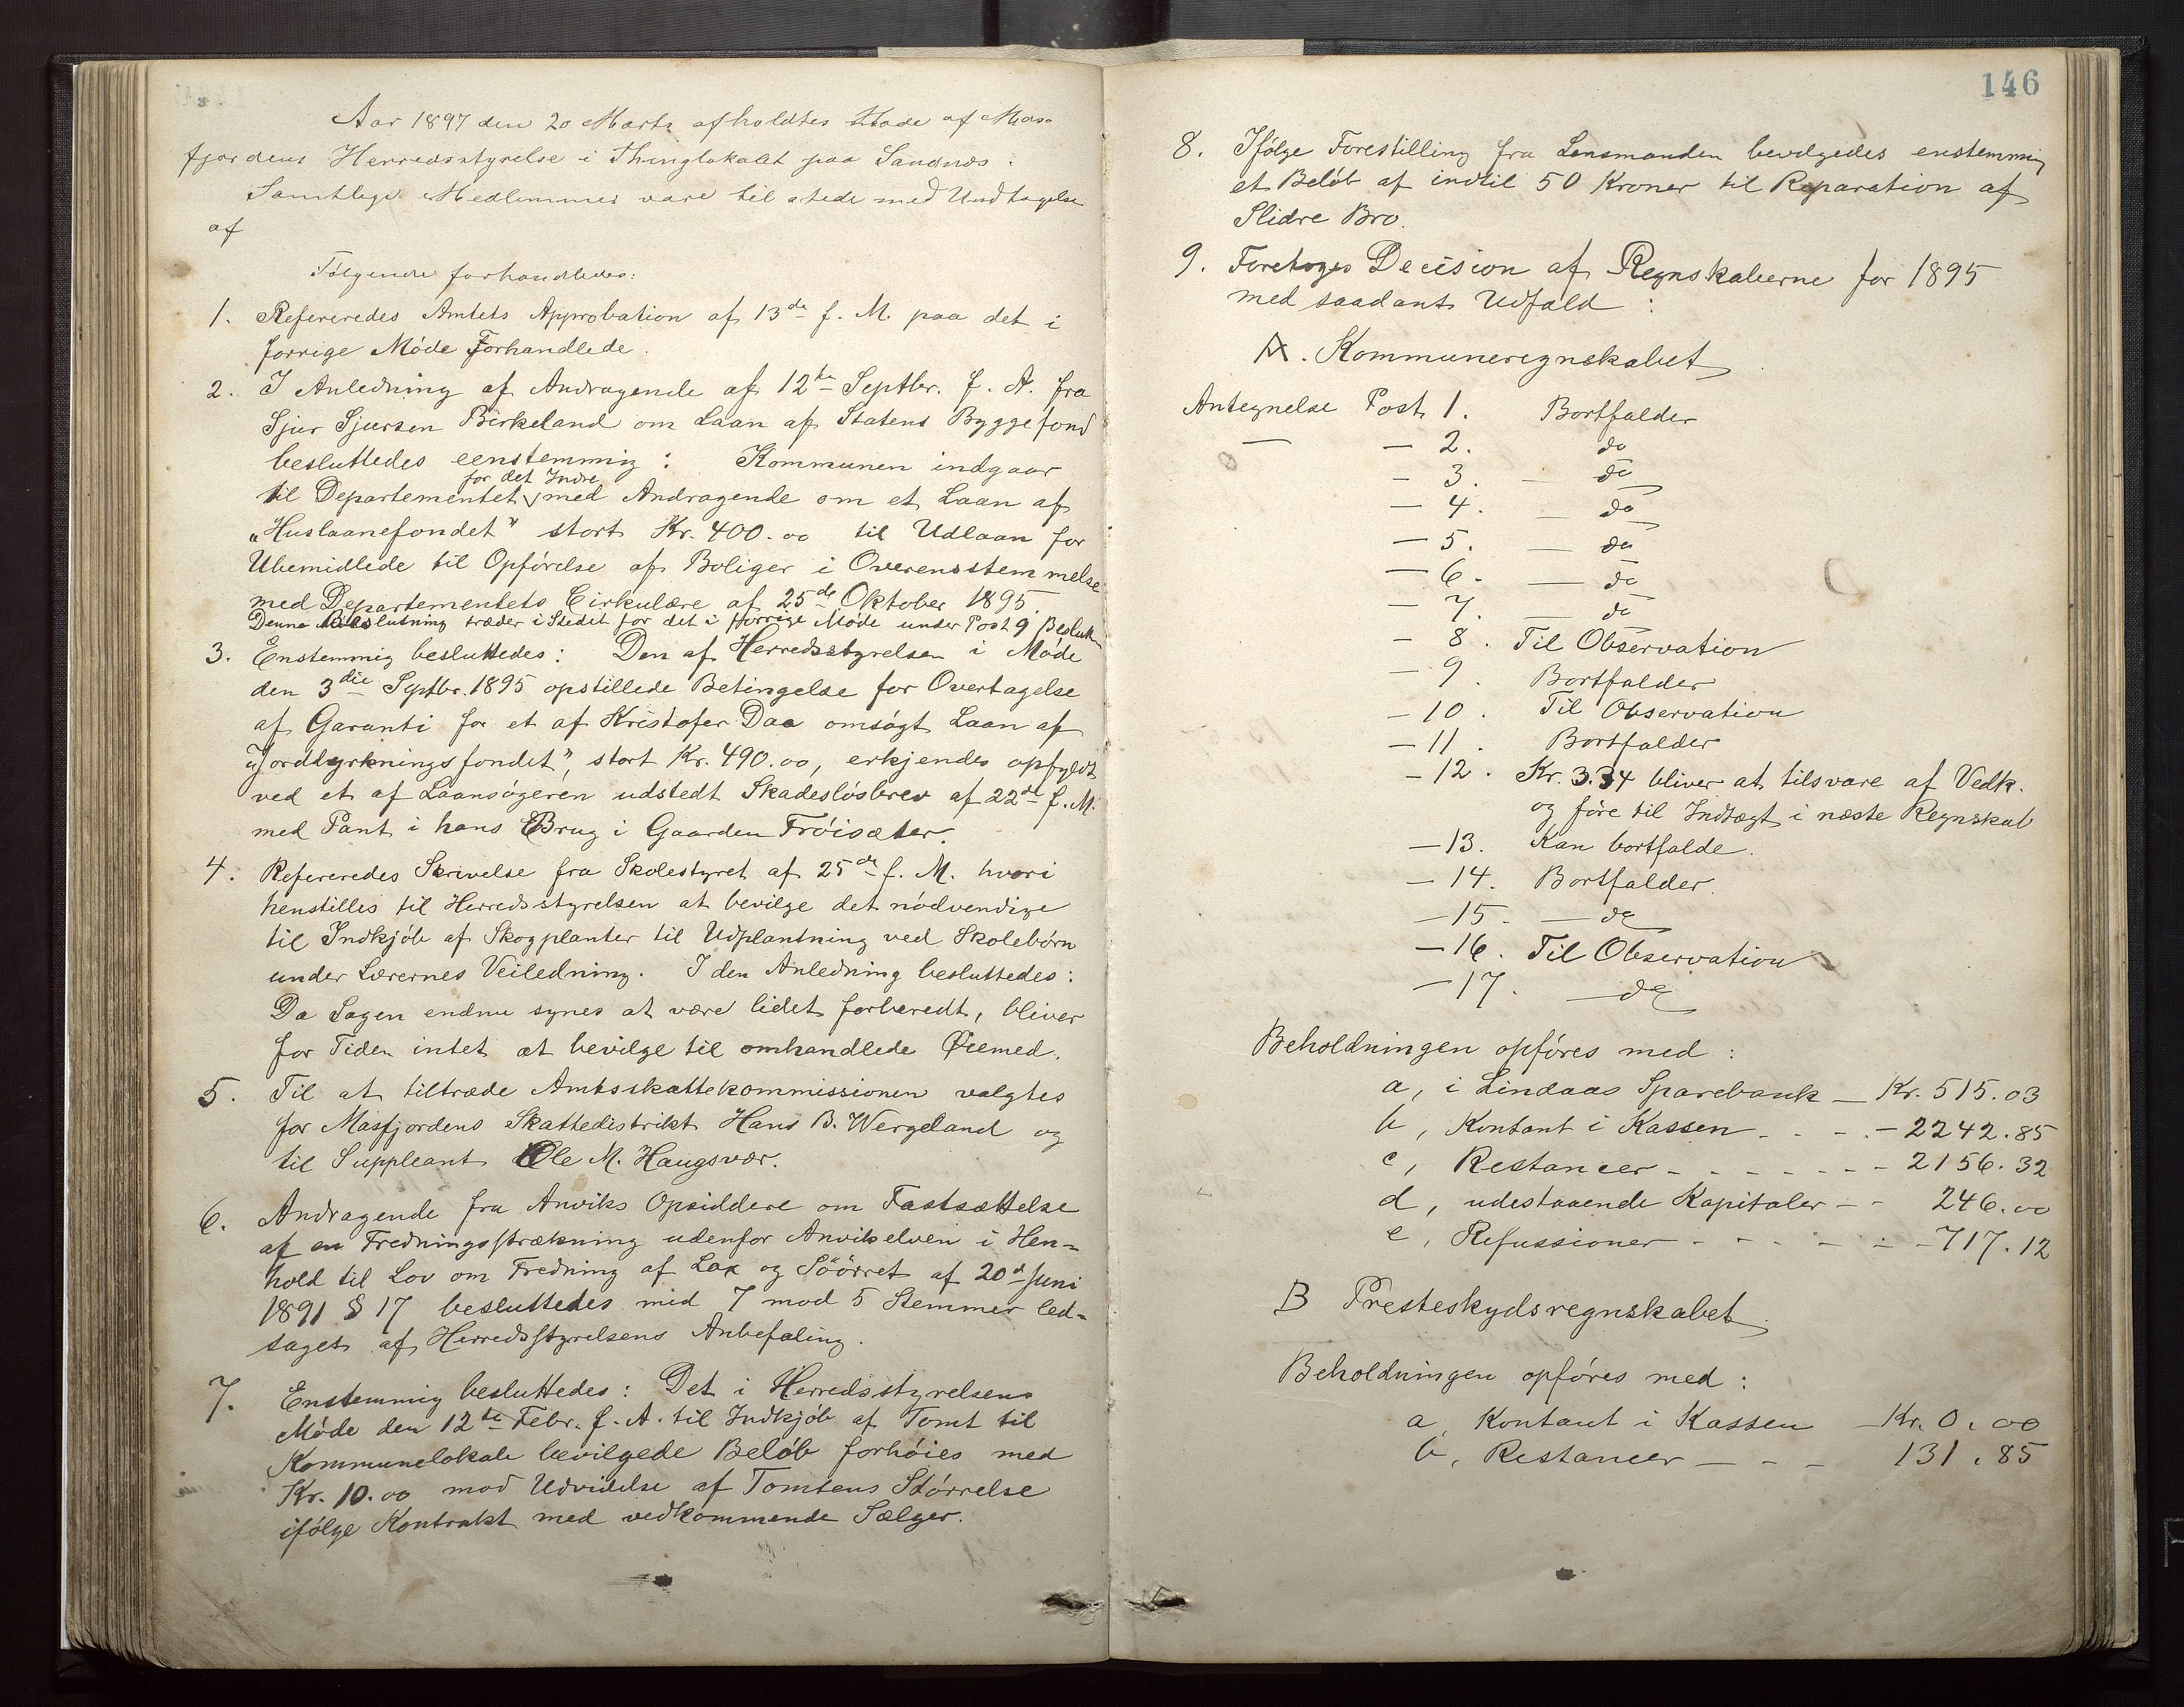 Aar 1897 den 20 Marts afholdtes Møde af Mas-
fjordens Herredsstyrelse i Thinglokalet paa Sandnæs.
Samtlige Medlemmer vare til stede med Undtagelse
af
Følgende forhandledes:
1. Refereredes Amtets Approbation af 13de f. M. paa det i
forrige Møde Forhandlede.
2. I Anledning af Andragende af 12te Septbr. f. A. fra
Sjur Sjursen Birkeland om Laan af Statens Byggefond
besluttedes eenstemmig: Kommunen indgaar
for det Indre
til Departementet med Andragende om et Laan af
„Huslaanefondet" stort Kr. 400.00 til Udlaan for
Ubemidlede til Opførelse af Boliger i Overensstemmelse
med Departementets Cirkulære af 25de Oktober 1895.
Denne Beslutning træder i Stedet for det i forrige Møde under Post 9 Beslutn
3. Enstemmig besluttedes: Den af Herredsstyrelsen i Møde
den 3die Septbr. 1895 opstillede Betingelse for Overtagelse
af Garanti for et af Kristofer Daa omsøgt Laan af
„Jorddyrkningsfondet", stort Kr. 490.00, erkjendes opfyldt
ved et af Laansøgeren udstedt Skadesløsbrev af 22de f. M.
med Pant i hans Brug i Gaarden Frøisæter.
4. Refereredes Skrivelse fra Skolestyret af 25de f. M. hvori
henstilles til Herredsstyrelsen at bevilge det nødvendige
til Indkjøb af Skogplanter til Udplantning ved Skolebørn
under Lærernes Veiledning. I den Anledning besluttedes:
Da Sagen endnu synes at være lidet forberedt, bliver
for Tiden intet at bevilge til omhandlede Øiemed.
5. Til at tiltræde Amtsskattekommissionen valgtes
for Masfjordens Skattedistrikt Hans B. Wergeland og
til Suppleant Ole M. Haugsvær.
6. Andragende fra Anviks Opsiddere om Fastsættelse
af en Fredningsstrækning udenfor Anvikelven i Hen-
hold til Lov om Fredning af Lax og Söörret af 20de Juni
1891 § 17 besluttedes med 7 mod 5 Stemmer led-
saget af Herredsstyrelsens Anbefaling.
7. Enstemmig besluttedes: Det i Herredsstyrelsens
Møde den 12te Febr. f. A. til Indkjøb af Tomt til
Kommunelokale bevilgede Beløb forhøies med
Kr. 10.00 mod Udvidelse af Tomtens Størrelse
ifølge Kontrakt med vedkommende Sælger.
146
8. Ifølge Forestilling fra Lensmanden bevilgedes enstemmig
et Beløb af indtil 50 Kroner til Reparation af
Slidre Bro.
9. Foretoges Decision af Regnskaberne for 1895
med saadant Udfald:
A. Kommuneregnskabet
Antegnelse Post 1. Bortfalder
— — 2. do
— 3. — do
— 4. — do
— 5. — do
— 6. — do
— 7. — do
— 8. Til Observation
— 9. Bortfalder
— 10. Til Observation
— 11. Bortfalder
— 12. Kr. 3.34 bliver at tilsvare af Vedk.
og føre til Indtægt i næste Regnskab
— 13. Kan bortfalde.
— 14. Bortfalder.
— 15. — do
— 16. Til Observation
— 17. — do
Beholdningen opføres med:
a, i Lindaas Sparebank — Kr. 515.03
b, Kontant i Kassen - - - - 2242.85
c, Restancer - - - - - - - 2156.32
d, udestaaende Kapitaler - - 246.00
e, Refussioner - - - - - - 717.12
B Presteskydsregnskabet
Beholdningen opføres med:
a, Kontant i Kassen Kr. 0.00
b, Restancer - - - 131.85